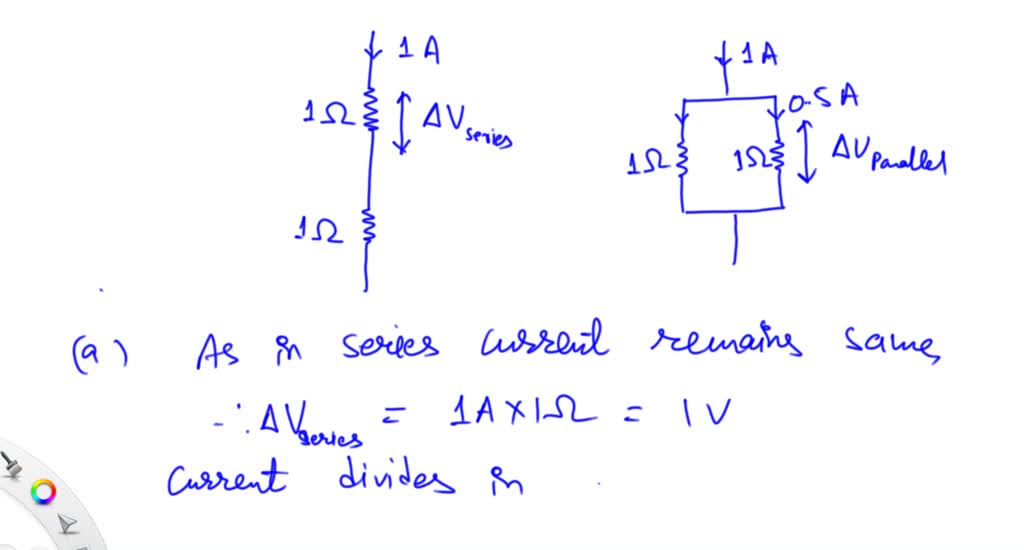 1A
1Ω
ΔVseries
1Ω
1A
0.5A
1Ω
1Ω
ΔVParallel
(a) As in series current remains same,
∴ ΔVseries = 1A×1Ω = 1V
Current divides in